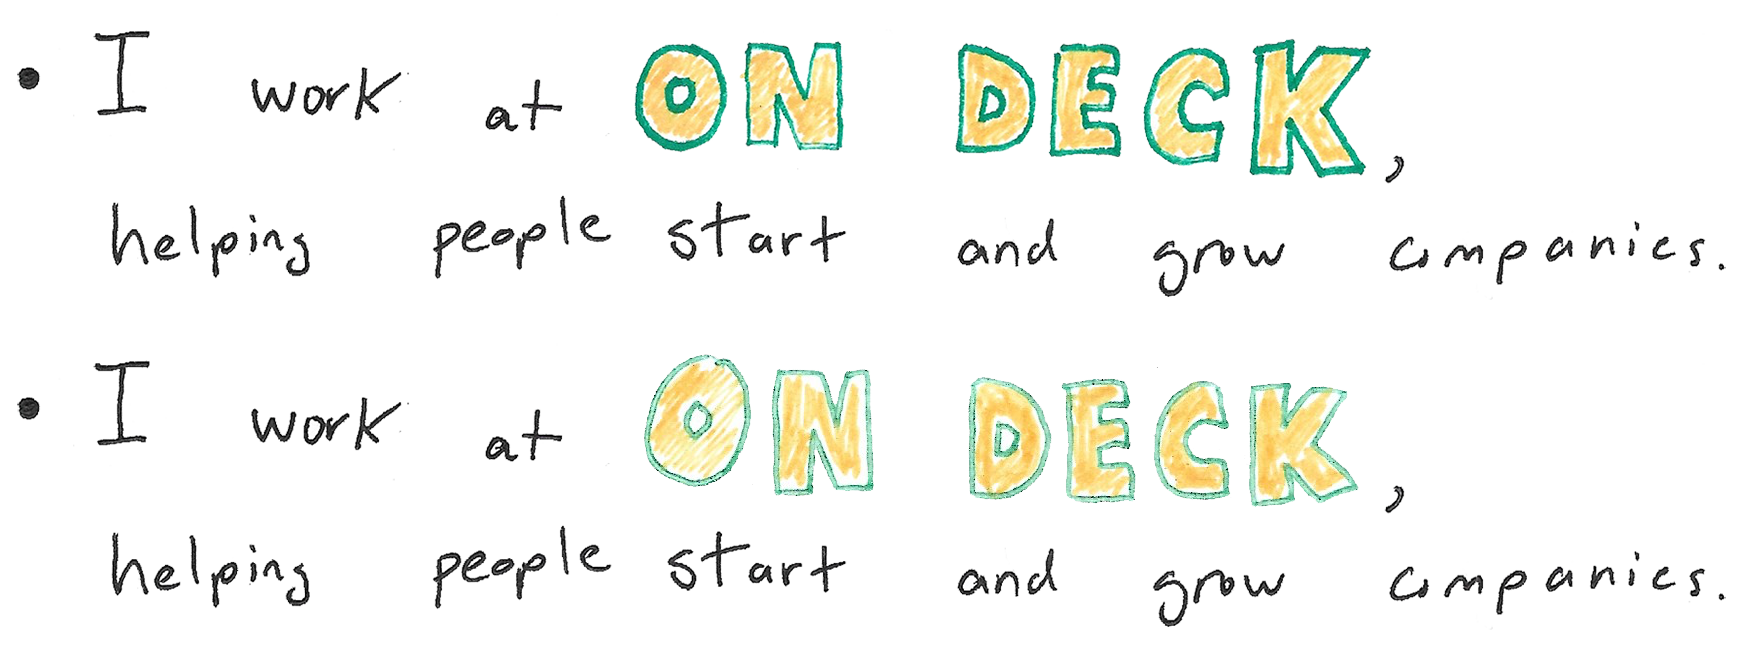 • I work at ON DECK,
helping people start and grow companies.
• I work at ON DECK,
helping people start and grow companies.